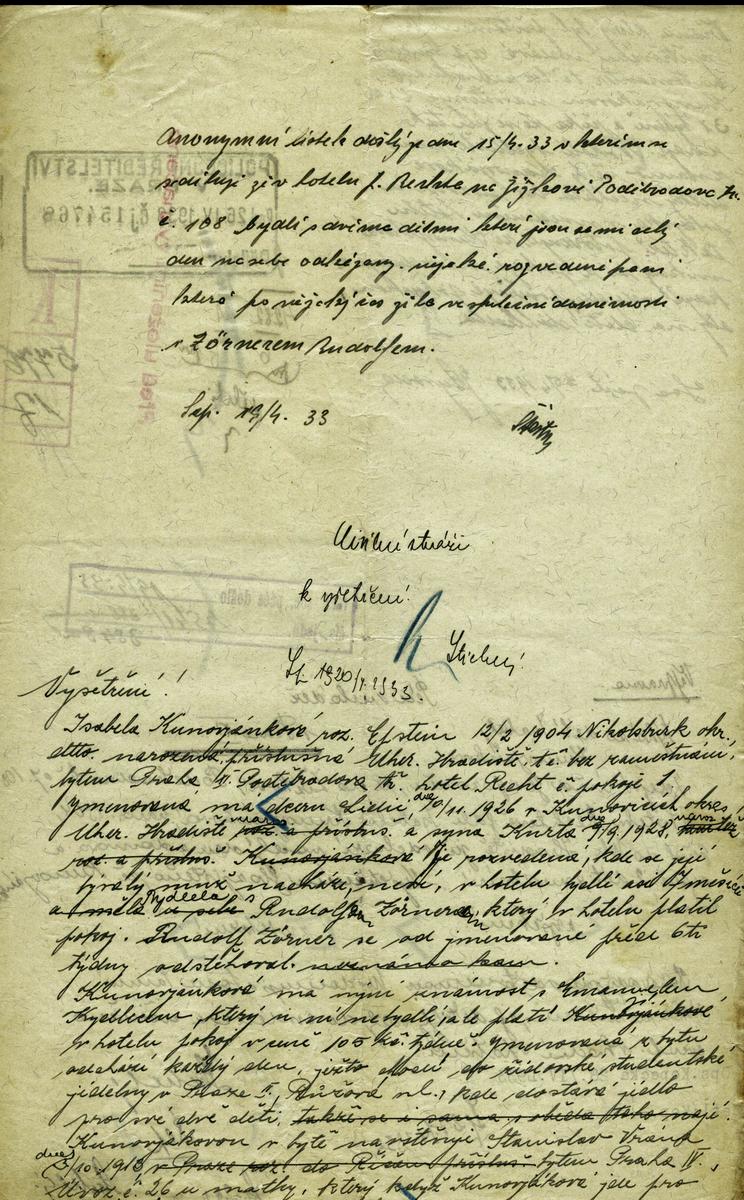 Anonymní lístek došlý dne 15/4. 33 v kterém se
sděluje že v hotelu f. Rechta na Žižkově Poděbradova tř.
č. 108 bydlí s dvěma dětmi kteří jsou sami celý
den na sebe odkázány. nějaká rozvedená paní
která po nějaký čas žila ve společné domácnosti
s Zörnerem Rudolfem.
19/4. 33
Civilní stráži
k vyšetření!
1933.
Vyšetření!
Isabela Kunovjánková roz. Epstein 12/2 1904 Nikolsburk okr.
dtto. narozená, příslušná Uher. Hradiště t. č. bez zaměstnání,
bytem Praha, Poděbradova tř. hotel Recht č. pokoje 1.
jmenovaná má dceru Lidii, 11. 1926 v Kunovicích okres
Uher. Hradiště roz. a přísluš. a syna Kurta 9. 1928,
roz. a přísluš. Kunovjánková je rozvedená, kde se její
bývalý muž nachází, neví, v hotelu bydlí asi 7 měsíců
a měla u sebe bydlela s Rudolfem Zörnerem, který v hotelu platil
pokoj. Rudolf Zörner se od jmenované před 6ti
týdny odstěhoval.
Kunovjánková má nyní známost s Emanuelem
který u ní nebydlí, ale platí Kunovjánkové
v hotelu pokoj v ceně 105 Kč. týdně. jmenovaná z bytu
odchází každý den, jelito chodí do židovské studentské
jídelny v Praze II, Růžová ul., kde dostává jídlo
pro své dvě děti, takže se i sama u oběda toho nají.
Kunovjánkovou v bytě navštěvuje Stanislav Vrána
10 1913 v Praze roz. do Říčan přísluš. bytem Praha IV.,
Úvoz č. 26 u matky, který když Kunovjánková jde pro